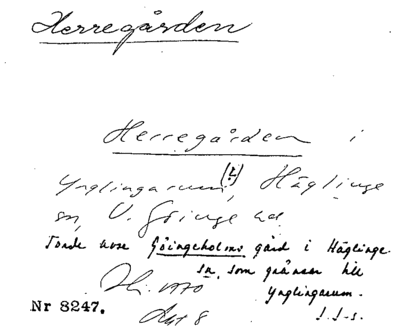 Herregården
Herregården i
Ynglingarum, (?) Häglinge
sn, V. Göinge hd
Torde avse Göingeholms gård i Häglinge
sn, som gränsar till
Ynglingarum.
1970
Nr 8247.